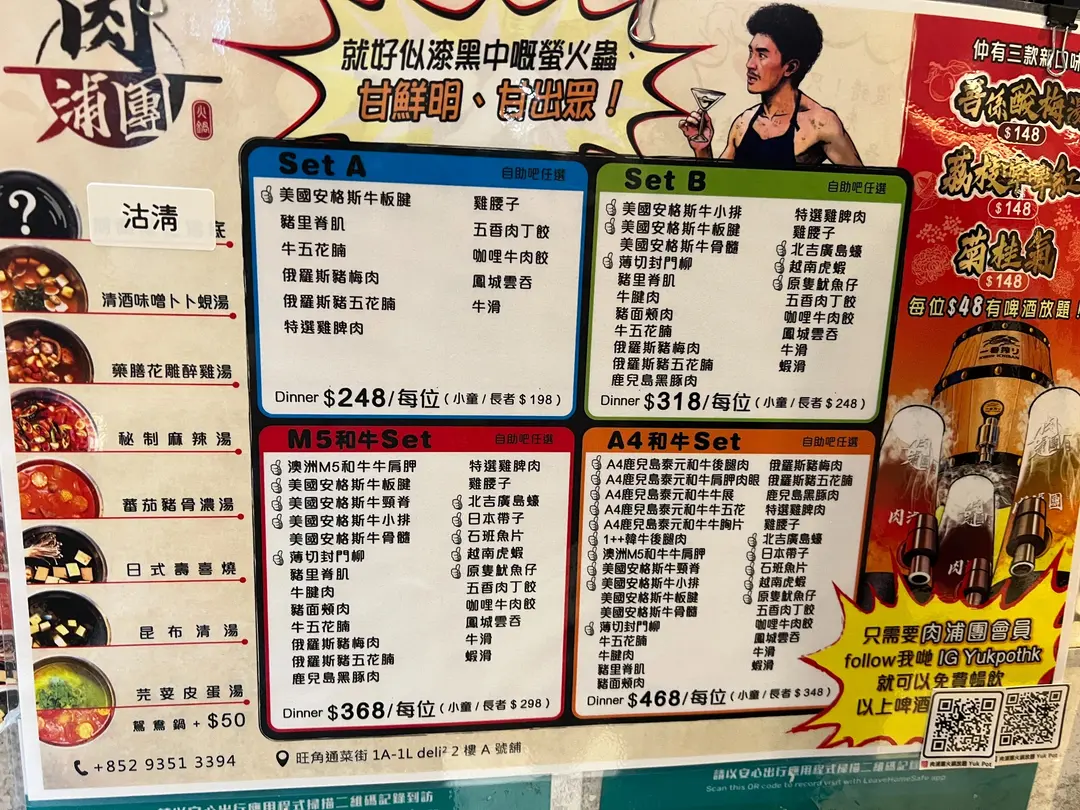 肉
浦團
火鍋
就好似漆黑中嘅螢火蟲
甘鮮明、甘出眾！
?
沽清
底
清酒味噌卜卜蜆湯
藥膳花雕醉雞湯
秘制麻辣湯
蕃茄豬骨濃湯
日式壽喜燒
昆布清湯
芫荽皮蛋湯
鴛鴦鍋 + $50
+852 9351 3394
旺角通菜街 1A-1L deli² 2 樓 A 號舖
Set A
自助吧任選
美國安格斯牛板腱
豬里脊肌
牛五花腩
俄羅斯豬梅肉
俄羅斯豬五花腩
特選雞脾肉
雞腰子
五香肉丁餃
咖哩牛肉餃
鳳城雲吞
牛滑
Dinner $248/每位 ( 小童 / 長者 $198 )
Set B
自助吧任選
美國安格斯牛小排
美國安格斯牛板腱
美國安格斯牛骨髓
薄切封門柳
豬里脊肌
牛腱肉
豬面頰肉
牛五花腩
俄羅斯豬梅肉
俄羅斯豬五花腩
鹿兒島黑豚肉
特選雞脾肉
雞腰子
北吉廣島蠔
越南虎蝦
原隻魷魚仔
五香肉丁餃
咖哩牛肉餃
鳳城雲吞
牛滑
蝦滑
Dinner $318/每位 ( 小童 / 長者 $248 )
M5和牛Set
自助吧任選
澳洲M5和牛牛肩胛
美國安格斯牛板腱
美國安格斯牛頸脊
美國安格斯牛小排
美國安格斯牛骨髓
薄切封門柳
豬里脊肌
牛腱肉
豬面頰肉
牛五花腩
俄羅斯豬梅肉
俄羅斯豬五花腩
鹿兒島黑豚肉
特選雞脾肉
雞腰子
北吉廣島蠔
日本帶子
石班魚片
越南虎蝦
原隻魷魚仔
五香肉丁餃
咖哩牛肉餃
鳳城雲吞
牛滑
蝦滑
Dinner $368/每位 ( 小童 / 長者 $298 )
A4和牛Set
自助吧任選
A4鹿兒島泰元和牛後腿肉
A4鹿兒島泰元和牛肩胛肉眼
A4鹿兒島泰元和牛牛展
A4鹿兒島泰元和牛牛五花
A4鹿兒島泰元和牛牛胸片
1++韓牛後腿肉
澳洲M5和牛牛肩胛
美國安格斯牛頸脊
美國安格斯牛小排
美國安格斯牛板腱
美國安格斯牛骨髓
薄切封門柳
牛五花腩
牛腱肉
豬里脊肌
豬面頰肉
俄羅斯豬梅肉
俄羅斯豬五花腩
鹿兒島黑豚肉
特選雞脾肉
雞腰子
北吉廣島蠔
日本帶子
石班魚片
越南虎蝦
原隻魷魚仔
五香肉丁餃
咖哩牛肉餃
鳳城雲吞
牛滑
蝦滑
Dinner $468/每位 ( 小童 / 長者 $348 )
仲有三款新口味
酸梅湯
$148
$148
菊桂氣
$148
每位$48有啤酒放題！
一番搾り
KIRIN ICHIBAN
只需要肉浦團會員
follow我哋 IG Yukpothk
就可以免費暢飲
以上啤酒
請以安心出行應用程式掃描二維碼記錄到訪
請以安心出行應用程式掃描二維碼記錄到訪
Scan this QR code to record visit with LeaveHomeSafe app